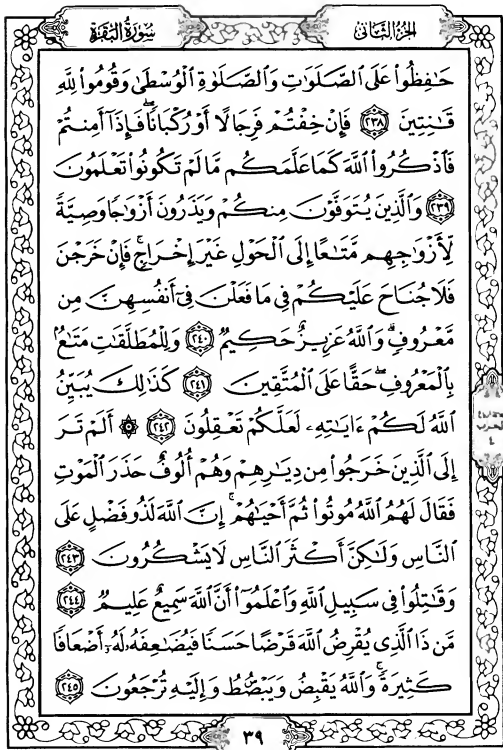 سُورَةُ البَقَرَةِ الجُزْءُ الثَّانِي
حَٰفِظُوا۟ عَلَى ٱلصَّلَوَٰتِ وَٱلصَّلَوٰةِ ٱلْوُسْطَىٰ وَقُومُوا۟ لِلَّهِ
قَٰنِتِينَ ٢٣٨ فَإِنْ خِفْتُمْ فَرِجَالًا أَوْ رُكْبَانًا ۖ فَإِذَآ أَمِنتُمْ
فَٱذْكُرُوا۟ ٱللَّهَ كَمَا عَلَّمَكُم مَّا لَمْ تَكُونُوا۟ تَعْلَمُونَ
٢٣٩ وَٱلَّذِينَ يُتَوَفَّوْنَ مِنكُمْ وَيَذَرُونَ أَزْوَٰجًا وَصِيَّةً
لِّأَزْوَٰجِهِم مَّتَٰعًا إِلَى ٱلْحَوْلِ غَيْرَ إِخْرَاجٍ ۚ فَإِنْ خَرَجْنَ
فَلَا جُنَاحَ عَلَيْكُمْ فِى مَا فَعَلْنَ فِىٓ أَنفُسِهِنَّ مِن
مَّعْرُوفٍ ۗ وَٱللَّهُ عَزِيزٌ حَكِيمٌ ٢٤٠ وَلِلْمُطَلَّقَٰتِ مَتَٰعٌۢ
بِٱلْمَعْرُوفِ ۖ حَقًّا عَلَى ٱلْمُتَّقِينَ ٢٤١ كَذَٰلِكَ يُبَيِّنُ
ٱللَّهُ لَكُمْ ءَايَٰتِهِۦ لَعَلَّكُمْ تَعْقِلُونَ ٢٤٢ ۞ أَلَمْ تَرَ
إِلَى ٱلَّذِينَ خَرَجُوا۟ مِن دِيَٰرِهِمْ وَهُمْ أُلُوفٌ حَذَرَ ٱلْمَوْتِ
فَقَالَ لَهُمُ ٱللَّهُ مُوتُوا۟ ثُمَّ أَحْيَٰهُمْ ۚ إِنَّ ٱللَّهَ لَذُو فَضْلٍ عَلَى
ٱلنَّاسِ وَلَٰكِنَّ أَكْثَرَ ٱلنَّاسِ لَا يَشْكُرُونَ ٢٤٣
وَقَٰتِلُوا۟ فِى سَبِيلِ ٱللَّهِ وَٱعْلَمُوٓا۟ أَنَّ ٱللَّهَ سَمِيعٌ عَلِيمٌ ٢٤٤
مَّن ذَا ٱلَّذِى يُقْرِضُ ٱللَّهَ قَرْضًا حَسَنًا فَيُضَٰعِفَهُۥ لَهُۥٓ أَضْعَافًا
كَثِيرَةً ۚ وَٱللَّهُ يَقْبِضُ وَيَبْصُۜطُ وَإِلَيْهِ تُرْجَعُونَ ٢٤٥
٣٩